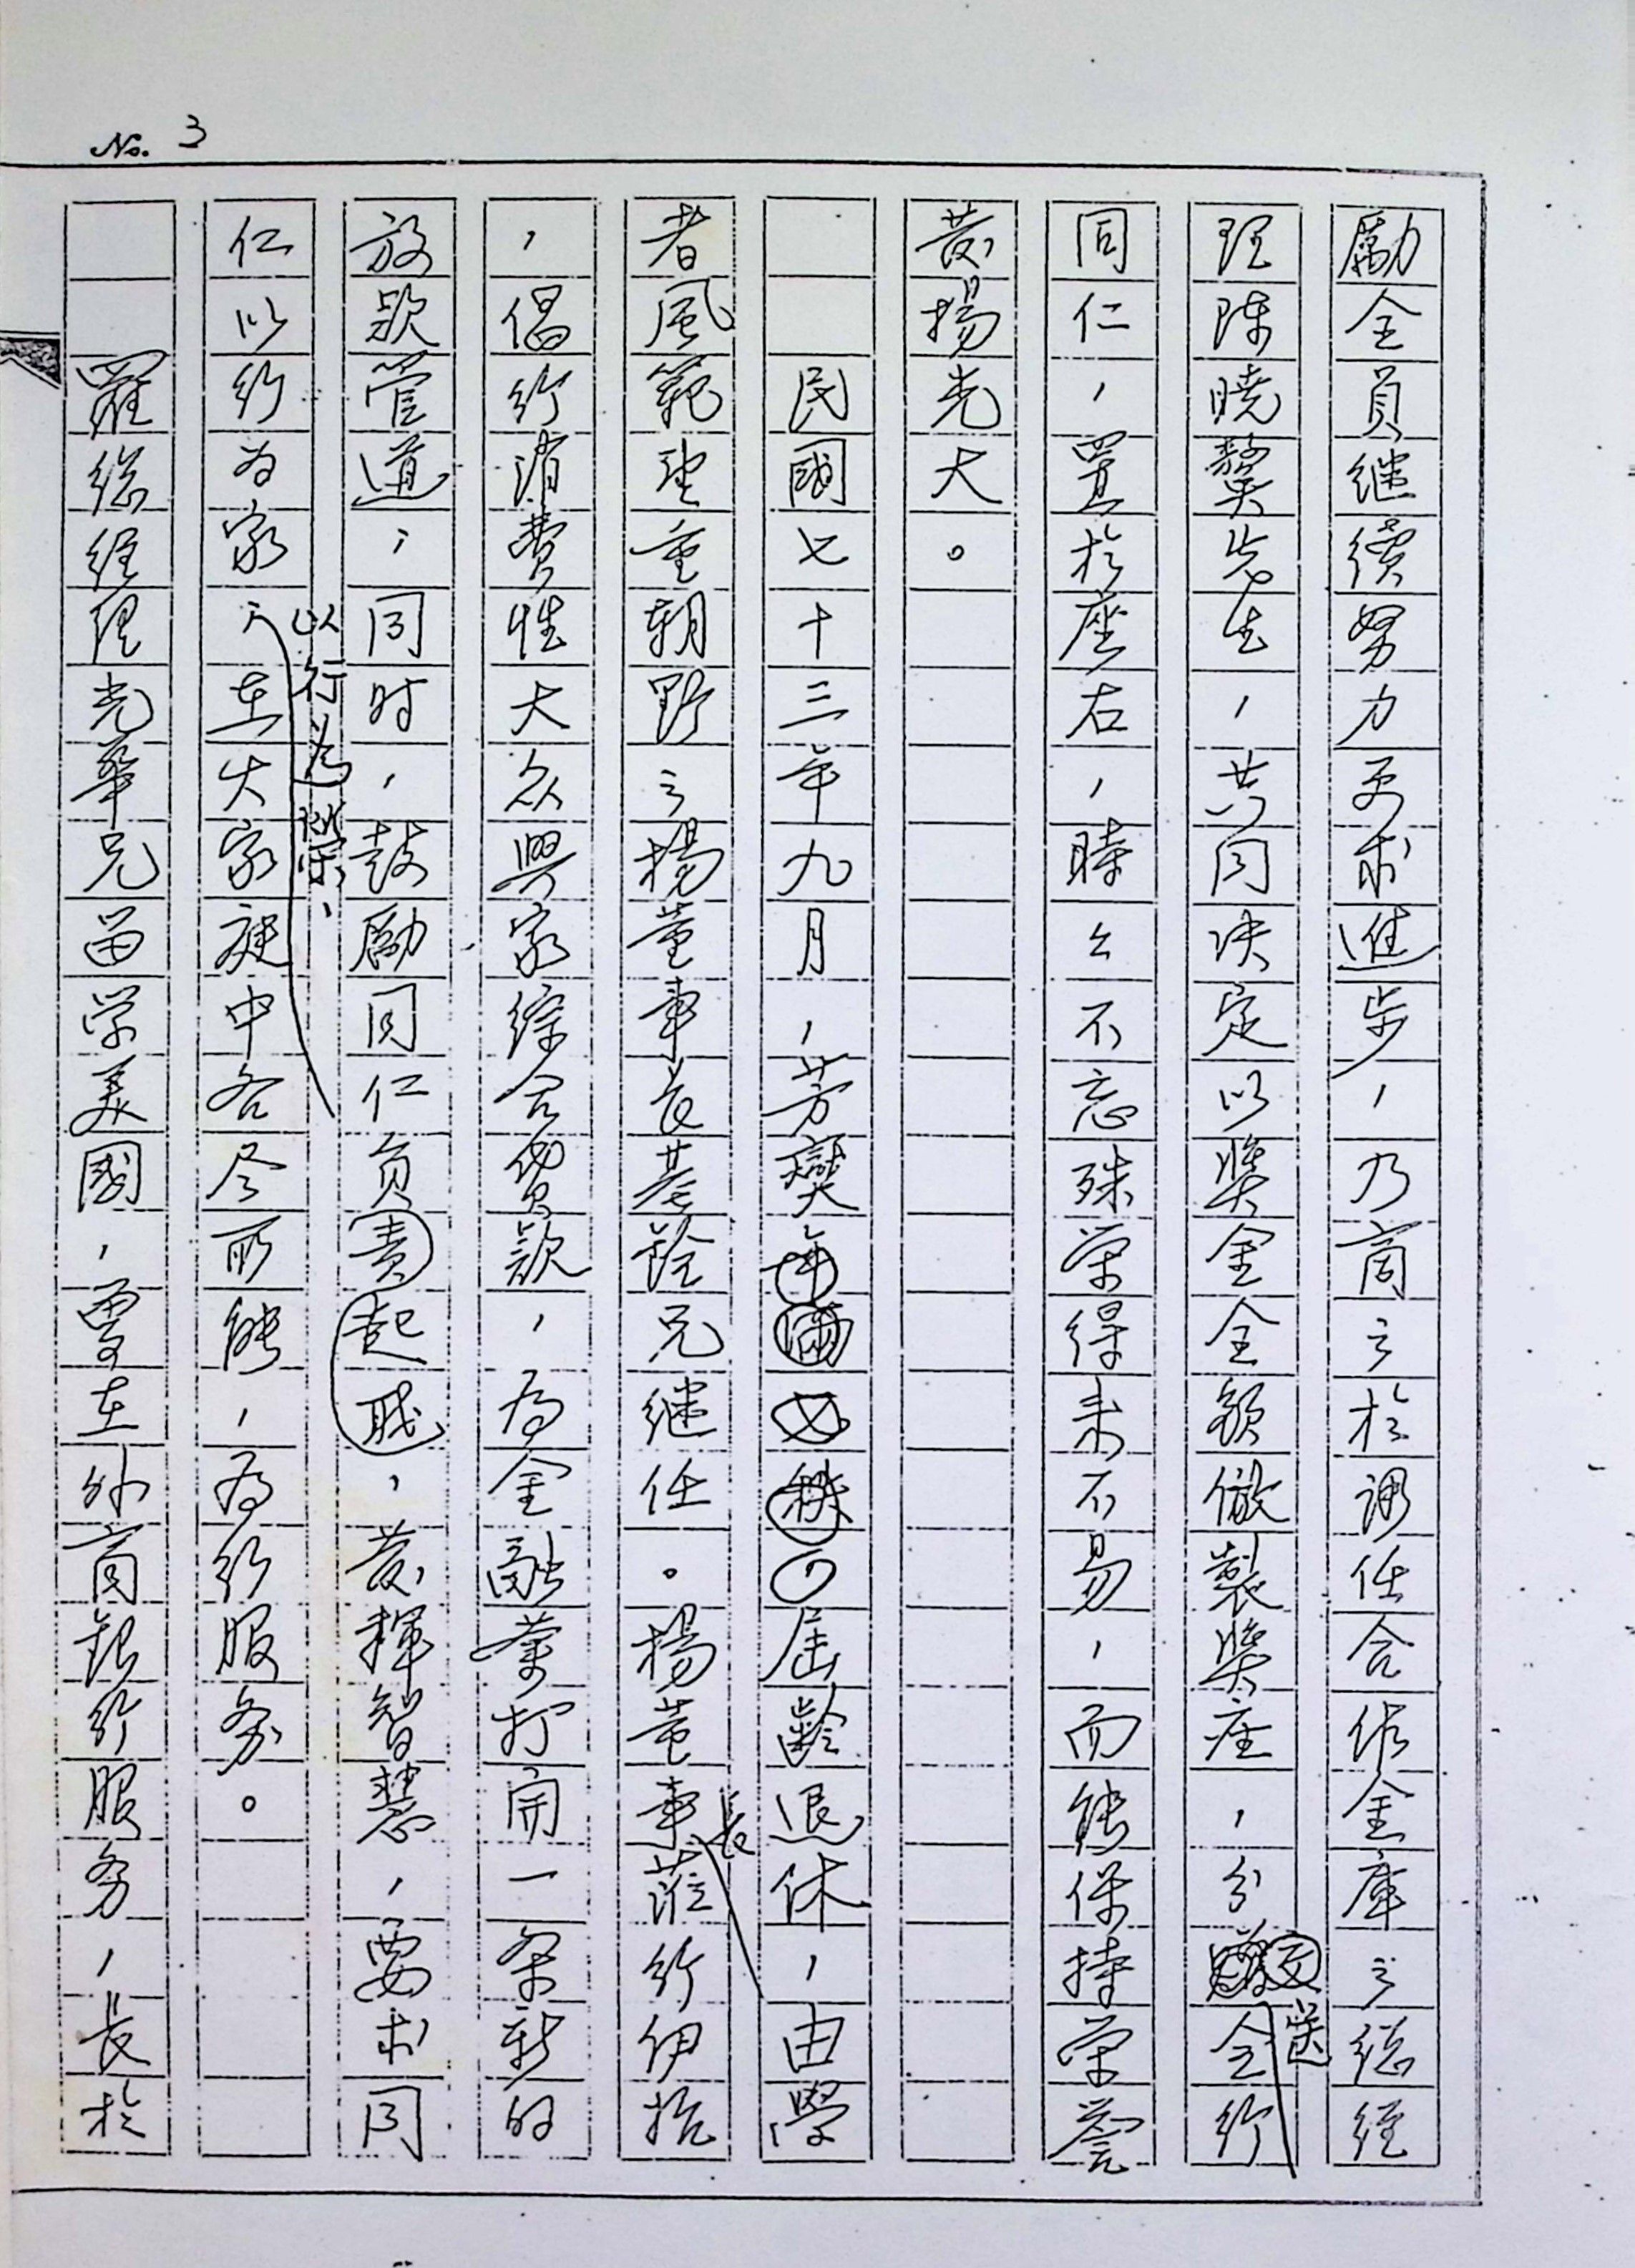 No. 3
勵全員継續努力更求進步，乃商之於調任合作金庫之總經
理陳曉鰲先生，共同決定以奬金全額倣製奬座，分送全行
同仁，置於座右，時々不忘殊荣得来不易，而能保持荣譽
發揚光大。
民國七十三年九月，芳燮屆齡退休，由學
者風範望重朝野之楊董事長基銓兄継任。楊董事長蒞行伊始
，倡行消費性大众與家綜合貸款，為金融業打開一条新的
放款管道；同时，鼓勵同仁負責，發揮智慧，要求同
仁以行為家，以行為榮，在大家庭中各尽所能，為行服务。
羅總經理光華兄留学美國，曾在外商銀行服务，長於